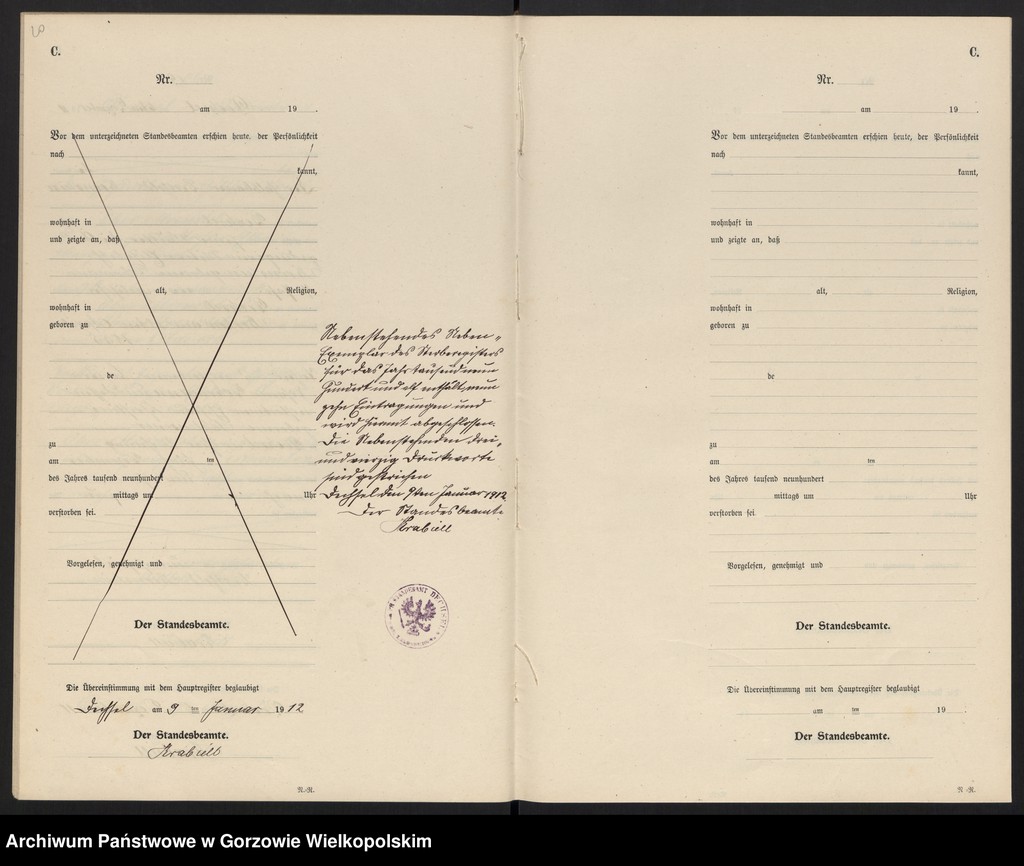 C.
Nr.
am 19 .
Vor dem unterzeichneten Standesbeamten erschien heute, der Persönlichkeit
nach
kannt,
wohnhaft in
und zeigte an, daß
alt, Religion,
wohnhaft in
geboren zu
de
zu
am ten
des Jahres tausend neunhundert
mittags um Uhr
verstorben sei.
Vorgelesen, genehmigt und
Der Standesbeamte.
Die Übereinstimmung mit dem Hauptregister beglaubigt
Dechsel am 9 ten Januar 1912
Der Standesbeamte.
Krabiell
N.-R.
Nebenstehendes Neben-
Exemplar des Sterberegisters
für das Jahr tausend neun
hundert und elf enthält, neun
zehn Eintragungen und
wird hiermit abgeschlossen.
Die Nebenstehenden drei-
und vierzig Druckworte
sind gestrichen
Dechsel den 9ten Januar 1912
Der Standesbeamte
Krabiell
STANDESAMT DECHSEL
C.
Nr.
am 19 .
Vor dem unterzeichneten Standesbeamten erschien heute, der Persönlichkeit
nach
kannt,
wohnhaft in
und zeigte an, daß
alt, Religion,
wohnhaft in
geboren zu
de
zu
am ten
des Jahres tausend neunhundert
mittags um Uhr
verstorben sei.
Vorgelesen, genehmigt und
Der Standesbeamte.
Die Übereinstimmung mit dem Hauptregister beglaubigt
am ten 19 .
Der Standesbeamte.
N.-R.
Archiwum Państwowe w Gorzowie Wielkopolskim